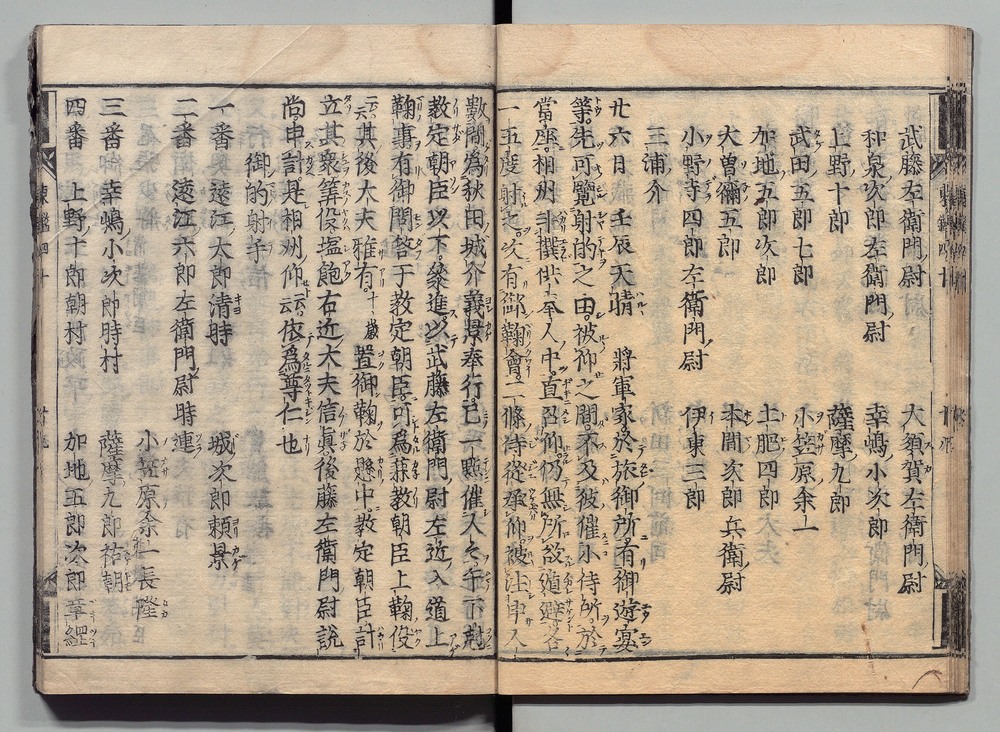 武藤左衛門尉　大須賀左衛門尉
和泉次郎左衛門尉　幸嶋小次郎
上野十郎　薩摩九郎
武田五郎七郎　小笠原余一
加地五郎次郎　土肥四郎
大曽禰五郎　本間次郎兵衛尉
小野寺四郎左衛門尉　伊東三郎
三浦介
廿六日　壬辰天晴　將軍家於旅御所有御遊宴
等先可覧射的之由被仰之間不及被催小侍所於
當座相州令撰供奉人中直召仰仍無所故遁避各
一五度射之次有御鞠會二條侍從承仰被
數間為秋田城介義景奉行已一點催人々午下尅
教定朝臣以下參進以武藤左衛門尉左近入道上
鞠事有御問答于教定朝臣可為兼教朝臣上鞠役
云云其後大夫雅有十歳置御鞠於懸中教定朝臣計
立其衆等役塩飽右近大夫信眞後藤左衛門尉説
尚申計是相州仰云云依為尊仁也
御的射手
一番　遠江太郎清時　城次郎頼景
二番　遠江六郎左衛門尉時連　小笠原余一長澄
三番　幸嶋小次郎時村　薩摩九郎祐朝
四番　上野十郎朝村　加地五郎次郎章綱